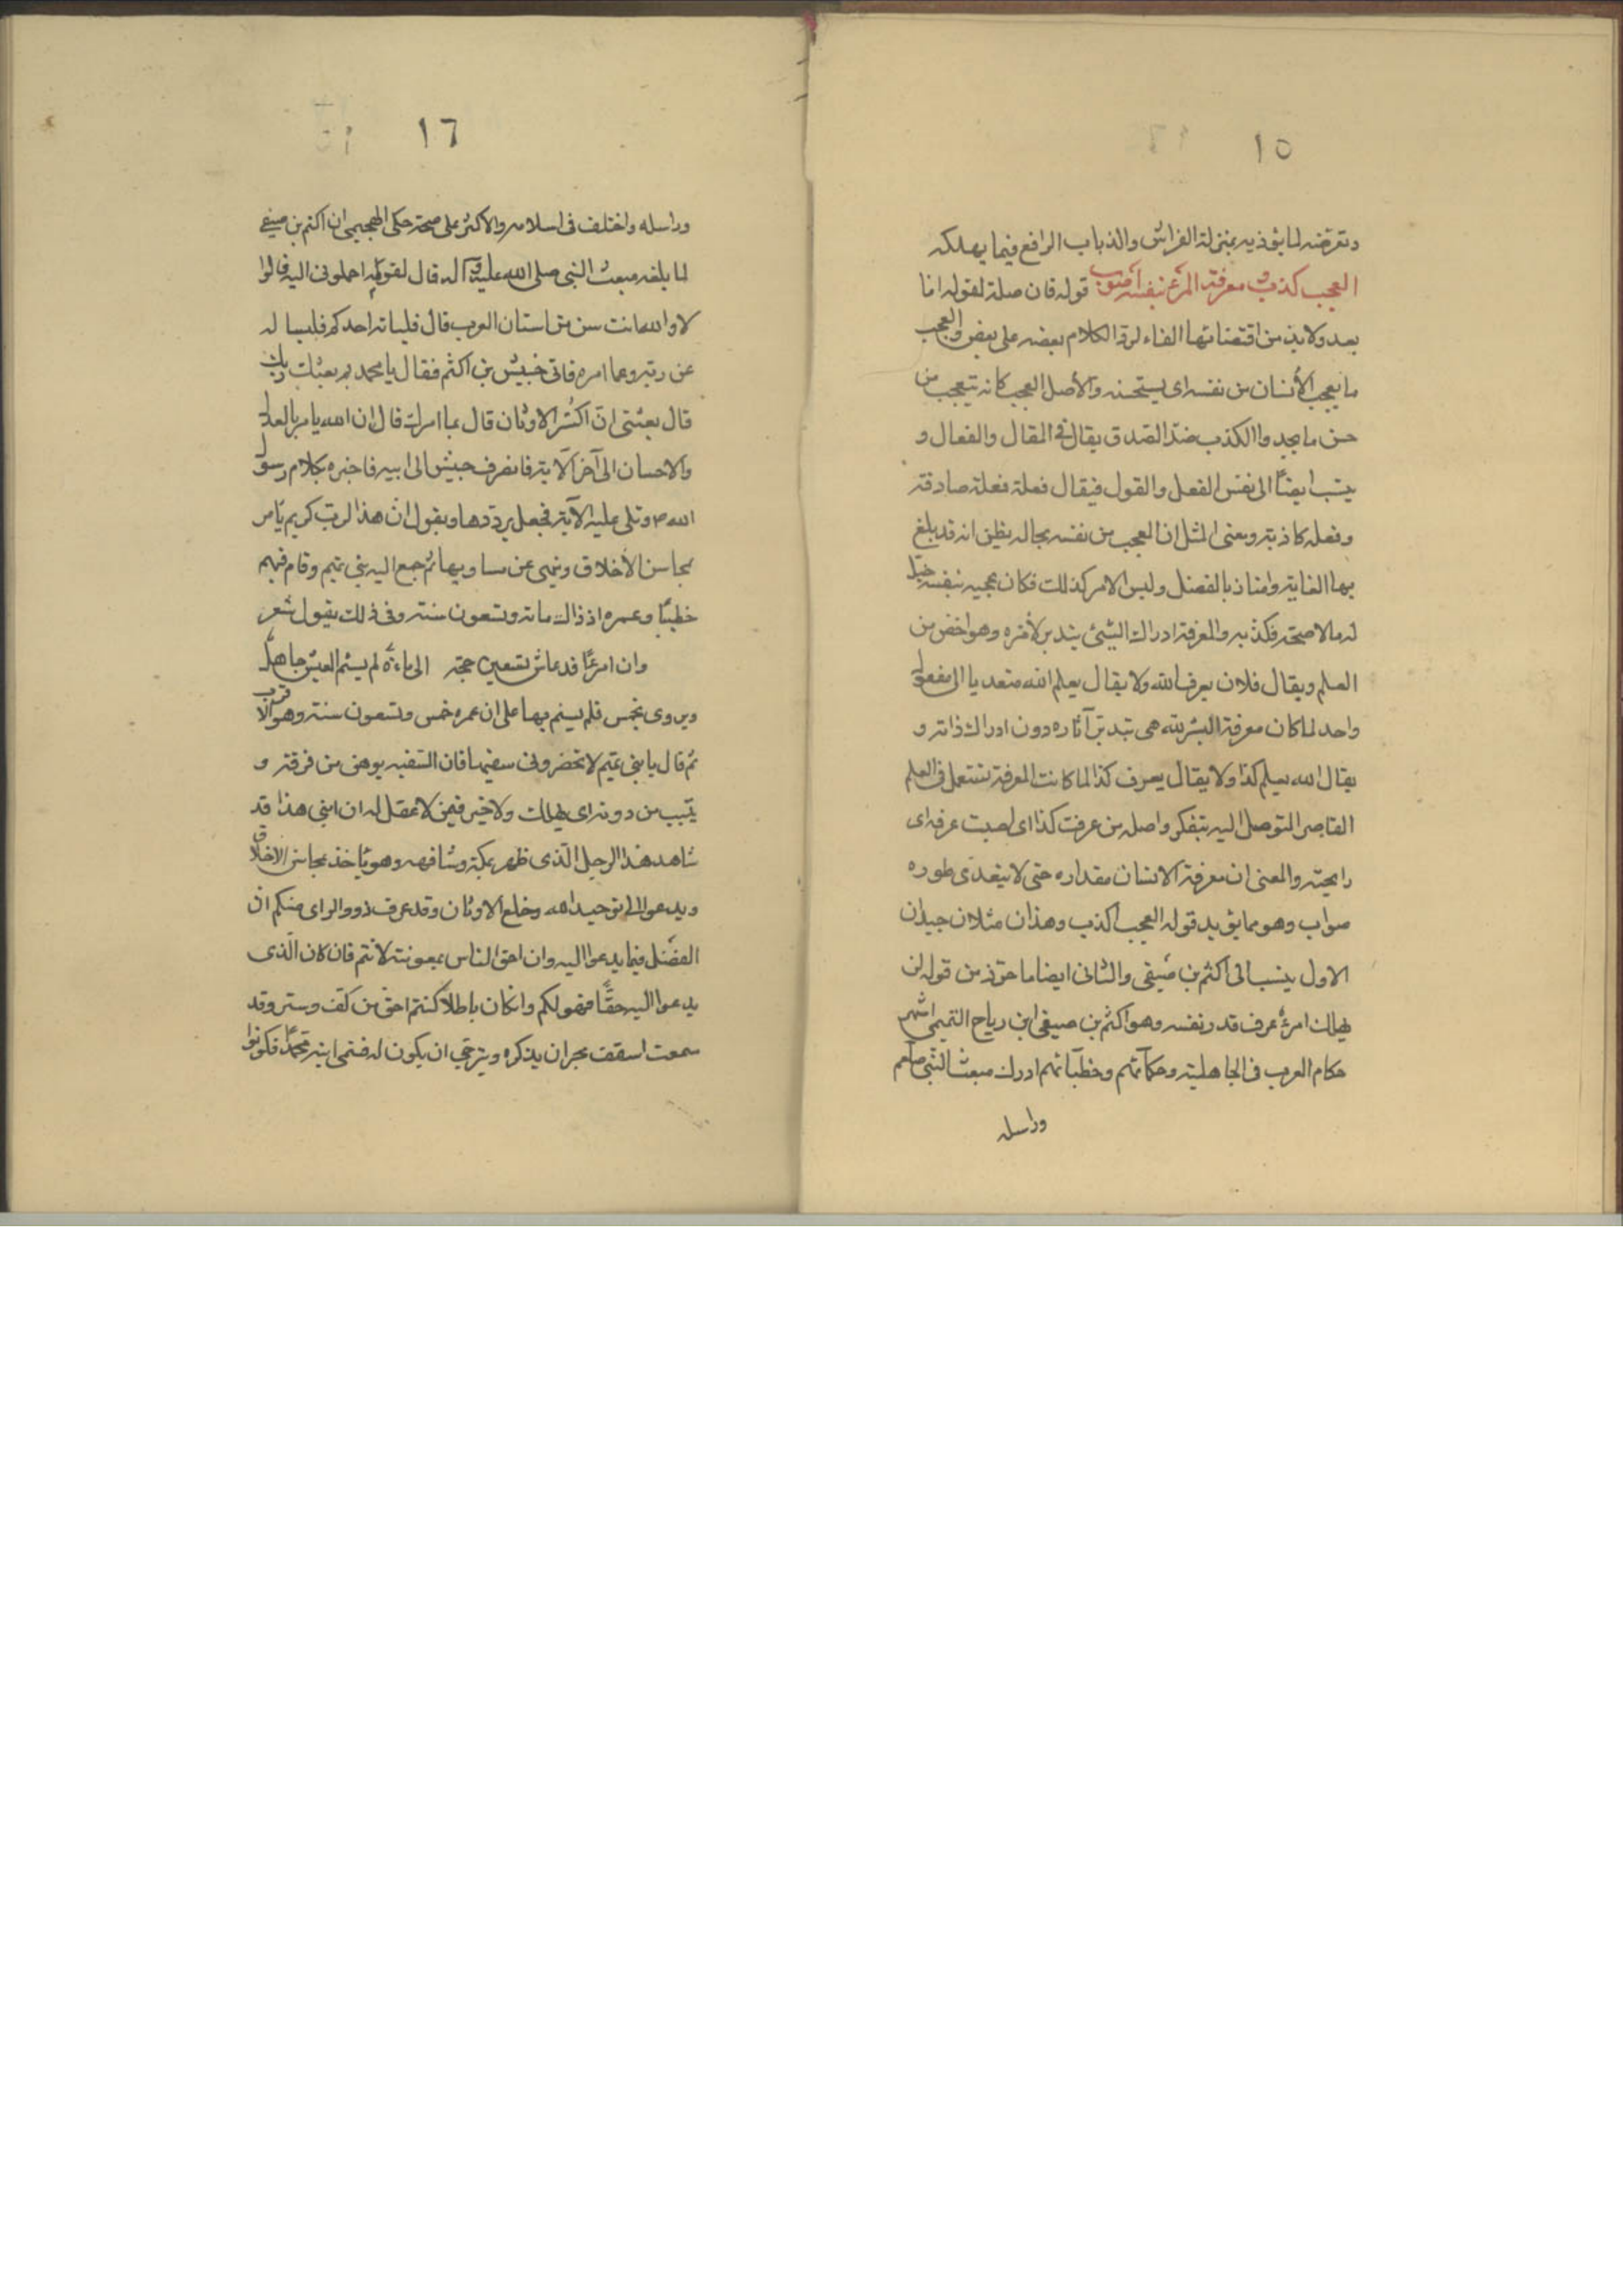 ١٥
وتعرضه لما يؤذيه بمنزلة الفراش والذباب الرافع فيما يهلكه
العجب كذب ومعرفة المرء نفسه اصوب قوله فان صلة لقوله اما
بعد ولا بد من اقتضائها الفاء لرد الكلام بعضه على بعض والعجب
ما يعجب الأنسان من نفسه اى يستحسنه والأصل العجب كانه يتعجب من
حسن ما يجد والكذب ضد الصدق يقال فى المقال والفعال و
ينسب ايضًا الى نفس الفعل والقول فيقال فعلة فعلة صادقة
وفعله كاذبة ومعنى المثل ان العجب من نفسه بحاله يظن انه قد بلغ
بها الغاية وامتاز بالفضل وليس الامر كذلك فكان عجبه بنفسه
له ما لا صحة فكذبه والمعرفة ادراك الشيئ بتدبر لأثره وهو اخص من
العلم ويقال فلان يعرف الله ولا يقال يعلم الله متعديا الى مفعول
واحد لما كان معرفة البشر لله هى بتدبر آثاره دون ادراك ذاته و
يقال الله يعلم كذا ولا يقال يعرف كذا لما كانت المعرفة تستعمل فى العلم
القاصر المتوصل اليه بتفكر واصله من عرفت كذا اى اصبت عرفه اى
رايحته والمعنى ان معرفة الانسان مقداره حتى لا يتعدى طوره
صواب وهو مما يؤيد قوله العجب اكذب وهذان مثلان جيدان
الاول ينسب الى اكثم بن صيفى والثانى ايضا ماخوذ من قوله لن
يهلك امرءٌ عرف قدر نفسه وهو اكثم بن صيفى ابن رياح التميمى اشهر
حكام العرب فى الجاهلية وحكمائهم وخطبائهم ادرك مبعث النبى صلعم
وراسله
١٦
وراسله واختلف فى اسلامه والاكثر على صحته حكى الهجيمى ان اكثم بن صيفى
لما بلغه مبعث النبى صلى الله عليه وآله قال لقومه احملونى اليه قالوا
لا والله انت سن من استان العرب قال فلياته احدكم فليساله
عن ربه وعما امره فاتى حبيش بن اكثم فقال يا محمد بم بعثك ربك
قال بعثنى ان اكسر الاوثان قال بما امرك قال ان الله يامر بالعدل
والاحسان الى آخر الآية فانصرف حبيش الى ابيه فاخبره بكلام رسول
الله ص وتلى عليه الآية فجعل يرددها ويقول ان هذا لرب كريم يامر
بمحاسن الأخلاق وينهى عن مساويها ثم جمع اليه بنى تميم وقام فيهم
خطيبًا وعمره اذ ذاك مائة وتسعون سنة وفى ذلك يقول شعر
وان امرءًا قد عاش تسعين حجة الى مائة لم يسئم العيش جاهل
ويروى بخمس فلم يسئم بها على ان عمره خمس وتسعون سنة وهو الاقرب
ثم قال يا بنى تميم لا تحضرونى سفيها فان السفيه يوهن من فوقه و
يتبب من دونه اى يهلك ولا خير فيمن لا عقل له ان ابنى هذا قد
شاهد هذا الرجل الذى ظهر بمكة وشافهه وهو ياخذ بمحاسن الاخلاق
ويدعو الى توحيد الله وخلع الاوثان وقد عرف ذوو الراى منكم ان
الفضل فيما يدعوا اليه وان احق الناس بمعونته لانتم فان كان الذى
يدعوا اليه حقًا فهو لكم وان كان باطلا كنتم احق من كف وستر وقد
سمعت اسقف نجران يذكره ويترجى ان يكون له فسمى ابنه محمدًا فكونوا